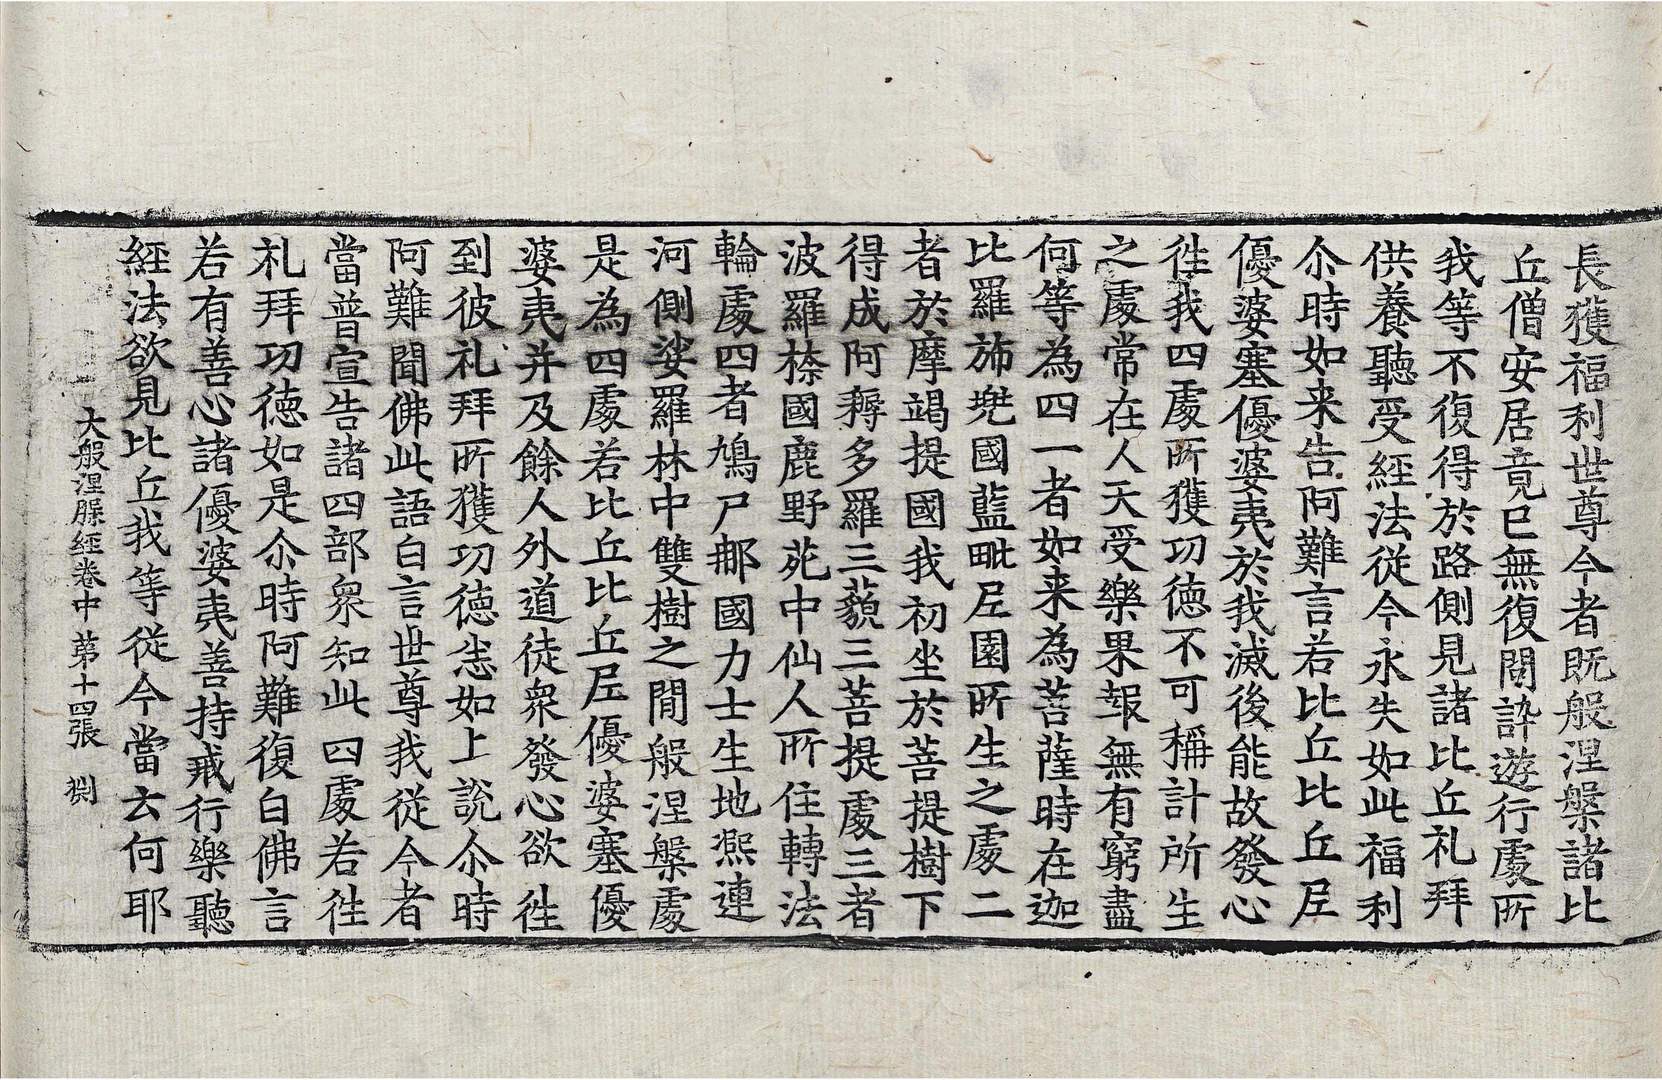 長獲福利世尊今者既般涅槃諸比
丘僧安居竟已無復問訊遊行處所
我等不復得於路側見諸比丘礼拜
供養聽受經法從今永失如此福利
尒時如来告阿難言若比丘比丘尼
優婆塞優婆夷於我滅後能故發心
徃我四處所獲功德不可稱計所生
之處常在人天受樂果報無有窮盡
何等為四一者如来為菩薩時在迦
比羅斾兠國藍毗尼園所生之處二
者於摩竭提國我初坐於菩提樹下
得成阿耨多羅三藐三菩提處三者
波羅㮈國鹿野苑中仙人所住轉法
輪處四者鳩尸那國力士生地熙連
河側娑羅林中雙樹之間般涅槃處
是為四處若比丘比丘尼優婆塞優
婆夷并及餘人外道徒衆發心欲徃
到彼礼拜所獲功德悉如上說尒時
阿難聞佛此語白言世尊我從今者
當普宣告諸四部衆知此四處若徃
礼拜功德如是尒時阿難復白佛言
若有善心諸優婆夷善持戒行樂聽
經法欲見比丘我等從今當云何耶
大般涅槃經卷中 第十四張